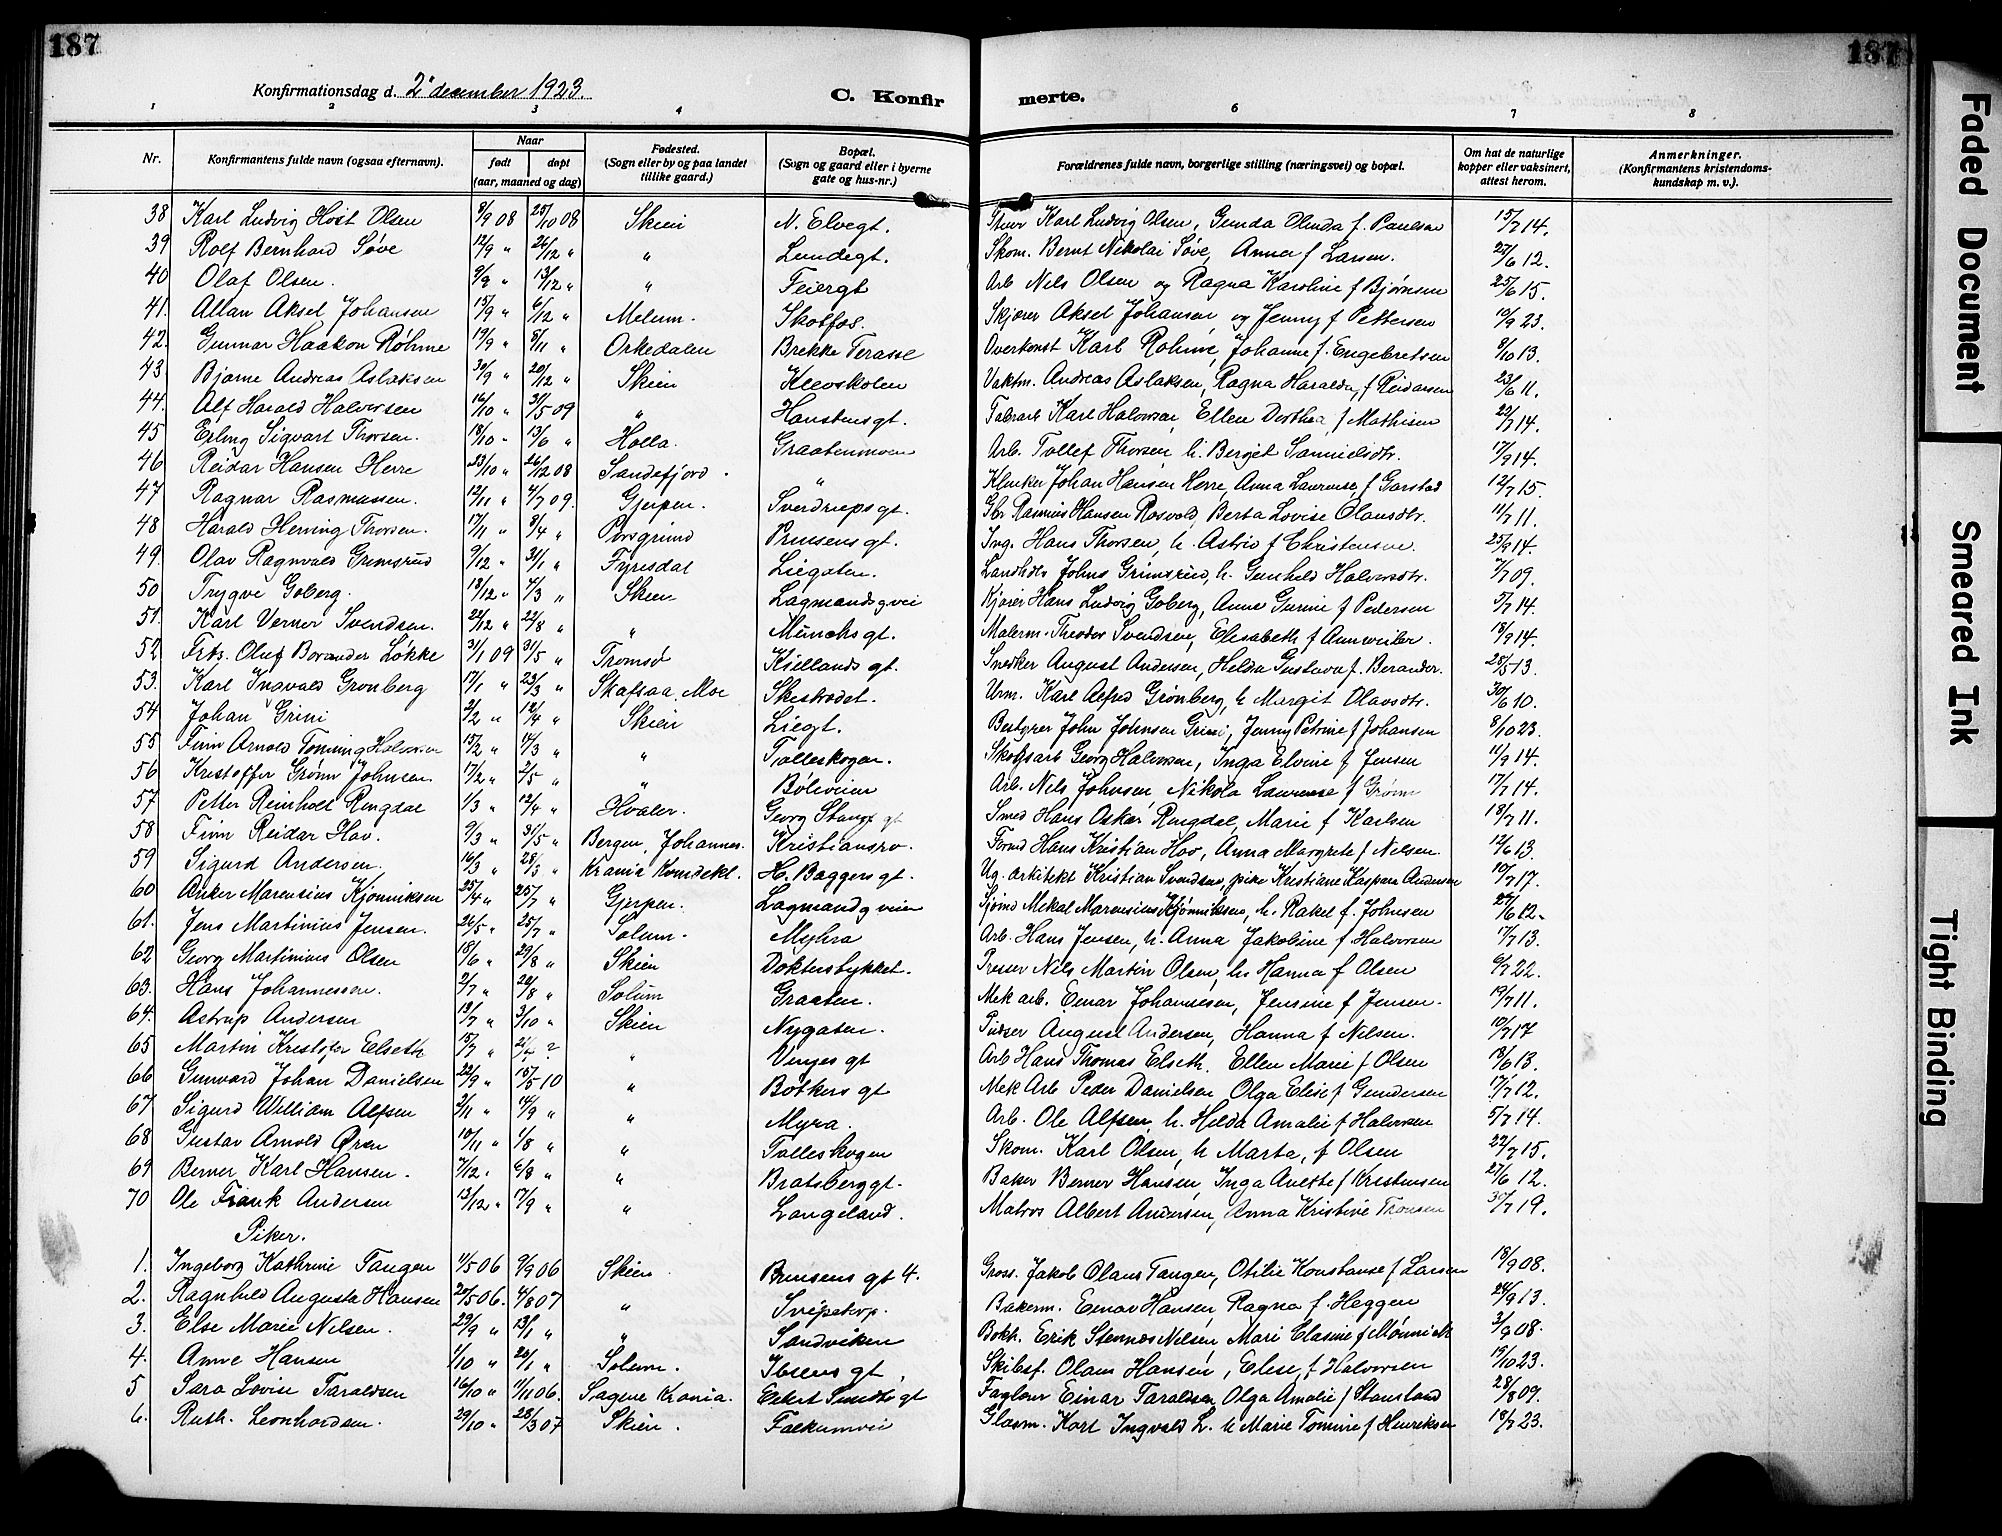 187
187
Konfirmationsdag d. 2' december 1923.
C. Konfir merte.
1 2 3 4 6 7 8
Nr. Konfirmantens fulde navn (ogsaa efternavn). Naar født døpt (aar, maaned og dag) Fødested. (Sogn eller by og paa landet tillike gaard.) Bopæl. (Sogn og gaard eller i byerne gate og hus-nr.) Forældrenes fulde navn, borgerlige stilling (næringsvei) og bopæl. Om hat de naturlige kopper eller vaksinert, attest herom. Anmerkninger. (Konfirmantens kristendoms-kundskap m. v.).
38 Karl Ludvig Høst Olsen 8/9 08 25/10 08 Skien N. Elvegt. Karl Ludvig Olsen, Gunda Olinda f. Paulsen 15/7 14.
39 Rolf Bernhard Søve 12/9 " 26/12 " " Lundegt. Skom. Bernt Nikolai Søve, Anna f Larsen. 25/6 12.
40 Olaf Olsen. 9/9 " 13/12 " " Feiergt Arb Nils Olsen og Ragna Karoline f Bjørnsen 25/6 15.
41. Allan Aksel Johansen 15/9 " 6/12 " Melum. Skotfos. Skjærer Aksel Johansen og Jenny f Pettersen 10/9 23.
42. Gunnar Haakon Røhme 19/9 " 8/11 " Orkedalen Brekke Terasse Overkonst Karl Røhme, Johanne f. Engebretsen 8/10 13.
43 Bjarne Andreas Aslaksen 30/9 " 20/12 " Skien Klevskolen Vaktm. Andreas Aslaksen, Ragna Haralda, f Reidarsen 23/6 11.
44. Alf Harald Halvorsen 16/10 " 31/5 09 " Hanstensgt. Fabrarb Karl Halvorsen Ellen Dorthea f Mathisen 20/7 14.
45 Erling Sigvart Thorsen. 18/10 " 13/6 " Holla. Graatenmoen Arb. Tollef Thorsen h. Bergjet Samuelsdtr. 17/9 14.
46 Reidar Hansen Herre 23/10 " 26/12 08 Sandefjord. " Klinker Johan Hansen Herre, Anna Laurense, f Garstad 12/7 15.
47 Ragnar Rasmussen. 12/11 " 4/7 09. Gjerpen. Sverdrupsgt. Gbr Rasmus Hansen Rosvold, Berta Lovise Olausdtr. 11/7 11.
48 Harald Henning Thorsen. 17/11 " 9/4 " Porsgrund Prinsens gt. Ing. Hans Thorsen, h. Astrid f Christensen. 25/9 14.
49. Olav Ragnvald Grimsrud 9/12 " 31/1 " Fyresdal Liegaten. Landhdl. Johns Grimsrud, h. Gunhild Halvorsdtr. 7/7 09.
50 Trygve Goberg. 18/12 " 4/3 " Skien Lagmandsgvei Kjører Hans Ludvig Goberg, Anne Gurine f Pedersen 5/7 14.
51. Karl Verner Svendsen. 22/12 " 22/8 " " Münchs gt. Malerm. Theodor Svendsen, Elisabeth f Annweiler. 18/9 14.
52 Frts. Oluf Borander Løkke 31/1 09 31/5 " Tromsø Kiellands gt. Snedker August Andersen, Helda Gustava f. Berander. 28/5 13.
53. Karl Ingvald Grønberg 17/1 " 23/3 " Skafsaa Moe Skistredet. Urm. Karl Alfred Grønberg, h Margit Olavsdtr. 30/6 10.
54 Johan Grini 2/2 " 12/4 " Skien Liegt. Bestyrer John Johnsen Grini, Jenny Petrine f Johansen 8/10 23.
55 Finn Arnold Tønning Halvorsen 15/2 " 14/3 " " Tolleskogen. Skofsarb Georg Halvorsen, Inga Elvine f Jensen 11/9 14.
56 Kristoffer Grønn Johnsen 17/2 " 2/5 " " Bøleveien Arb. Nils Johnsen, Nikola Laurense f Grønn 17/7 14.
57 Petter Reinholt Ringdal 1/3 " 12/4 " Hvaler. Georg Stangs gt Smed Hans Oskar Ringdal, Marie f Karlsen 18/7 11.
58 Finn Reidar Hov. 9/3 " 31/5 " Bergen, Johannes. Kristiansro. Formd Hans Kristian Hov, Anna Margrete f Nilsen. 12/6 13.
59 Sigurd Andersen. 16/3 " 28/3 " Krania Komdekl. H. Baggersgt. Ug. arkitekt Kristian Svendsen, pike Kristiane Kaspara Andersen 10/7 17.
60 Anker Marensius Kjønniksen 25/4 " 25/7 " Gjerpen. Lagmandgveien Sjømd Mekal Marensius Kjønniksen, h. Rakel f. Johnsen 24/6 12.
61. Jens Martinius Jensen. 26/5 " 25/7 " Solum. Myhra Arb. Hans Jensen, h. Anna Jakobine f Halvorsen 17/7 13.
62 Georg Martinius Olsen 18/6 " 29/8 " Skien Doktersbykket. Presser Nils Martin Olsen, h. Hanna f Olsen 6/7 22.
63. Hans Johannessen. 2/7 " 29/8 " Solum Graaten. Mek arb. Einar Johannesen, Jensine f Jensen. 19/7 11.
64. Astrup Andersen 13/7 " 3/10 " Skien Nygaten. Pudser August Andersen, Hanna f Nilsen. 10/7 17
65 Martin Kristofer Elseth 15/7 " 21/4 ? " Vinjes gt Arb Hans Thomas Elseth. Ellen Marie f Olsen 18/6 13.
66 Gunvard Johan Danielsen 22/9 " 15/5 10 " Bøtkers gt Mek Arb Peder Danielsen Olga Elise f Gundersen 17/7 12.
67 Sigurd William Alfsen 2/11 " 14/9 " " Myra. Arb. Ole Alfsen, h. Helda Amalie f Halvorsen 5/7 14.
68 Gustav Arnold Øren 10/11 " 1/8 " " Tolleskogen Skom. Karl Olsen, h Marta, f Olsen 22/7 15.
69 Berner Karl Hansen. 7/12 " 6/8 " " Bratsberggt. Baker Berner Hansen Inga Anette f Kristensen 27/6 12.
70 Ole Frank Andersen 13/12 " 17/9 " " Langeland. Matros Albert Andersen, Anna Kristine Thorsen 30/7 19.
Piker.
1. Ingeborg Kathrine Tangen 11/5 06 9/9 06 Skien Brunsens gt 4. Gross. Jakob Olaus Tangen, Otilie Konstanse f Larsen 18/9 08.
2. Ragnhild Augusta Hansen 20/5 06. 4/8 07 " Svipetorp. Bakerm. Einar Hansen, Ragna f. Heggen 24/9 13.
3. Else Marie Nilsen. 29/9 " 13/1 " " Sandviken Bokh. Erik Stennes Nilsen, Mari Elasine f Mønnich 3/9 08.
4. Anne Hansen 1/10 " 20/1 " Solum. Ibsens gt, Skibsf. Olam Hansen, Elise f Halvorsen 19/10 23.
5 Sara Lovise Taraldsen 16/10 " 11/11 06. Sagene Krania. Eilert Sundts gt Faglær Einar Taraldsen Olga Amalie f Stansland 28/8 09.
6. Ruth Leonhardsen. 29/10 " 28/3 07 Skien. Falkumvei Glasm. Karl Ingvald L. h Marie Tomine f Henriksen 18/7 23.
Faded Document
Smeared Ink
Tight Binding